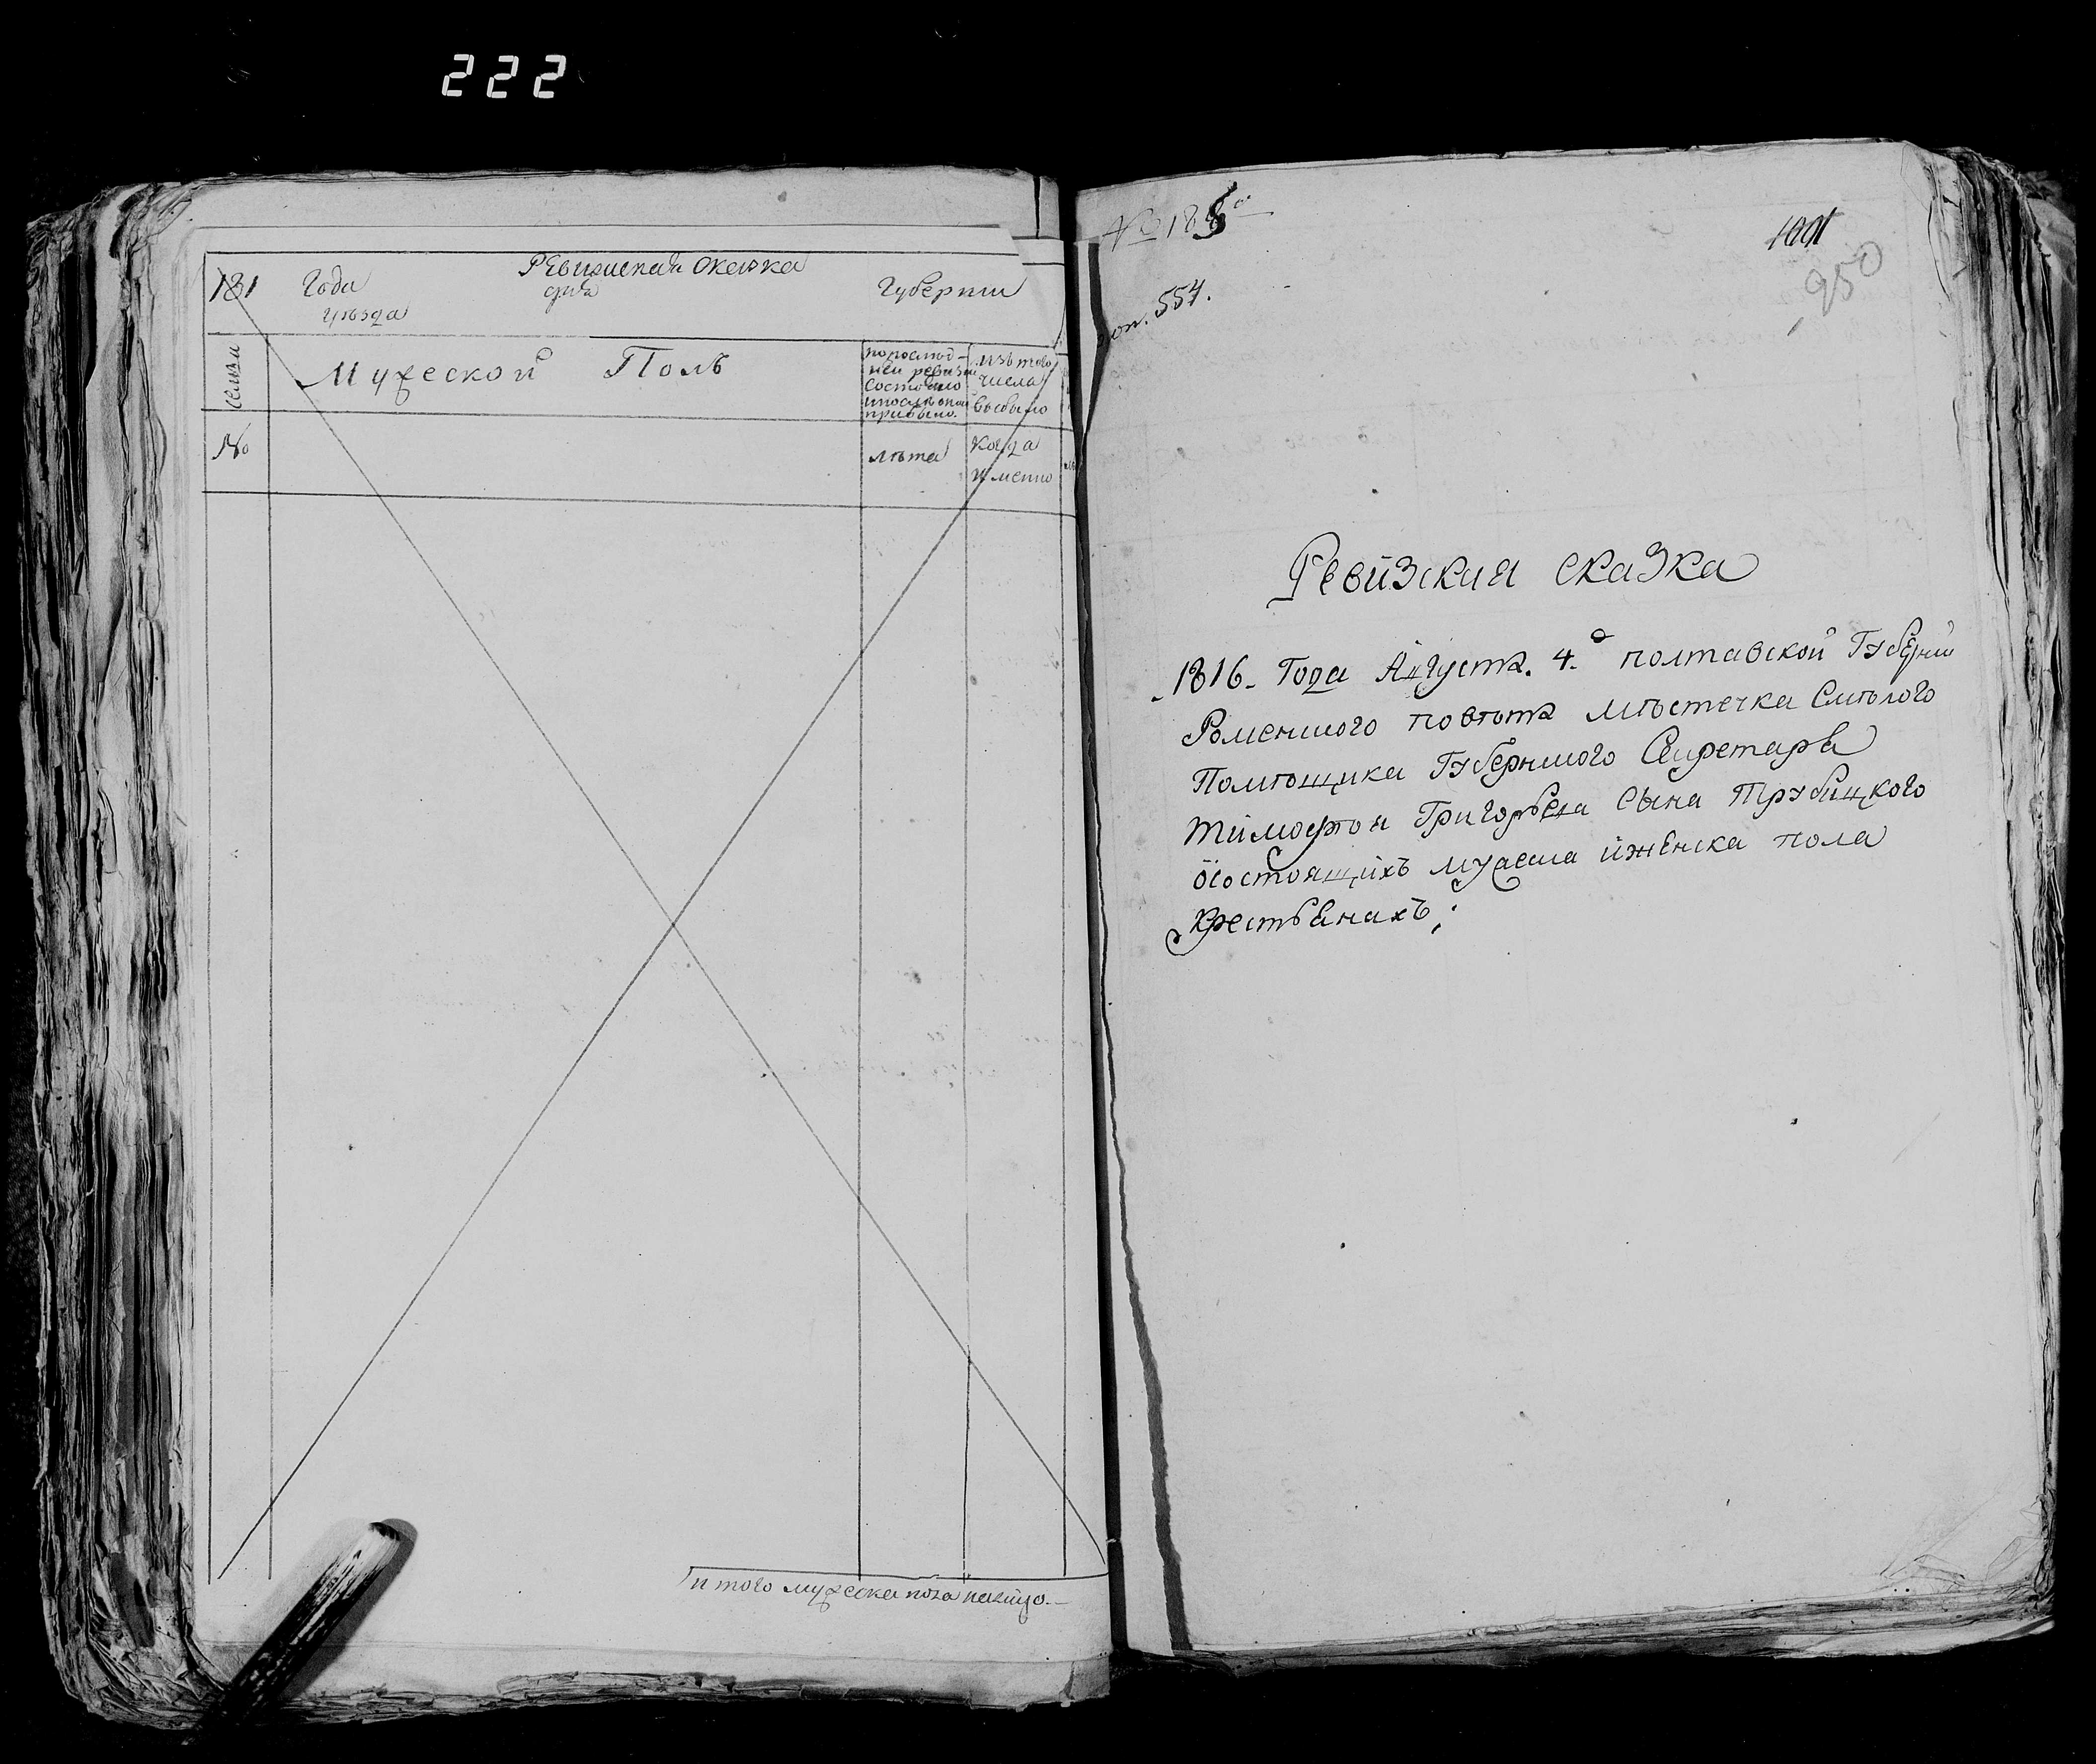 222
181 Года Ревизская Скаска Губернии
уѣзда дня
семьи
Мужеской Полъ
по послѣд-
ней ревизіи
состояло
и послѣ оной
прибыло.
изъ того
числа
выбыло
№
лѣта
когда
именно
и того мужеска пола налицо.
№ 188
1001
950
оп. 554.
Ревизская сказка
1816. Года Августа. 4.го полтавской Губерніи
Роменского повѣта мѣстечка Смѣлого
Помѣщика Губернского Секретаря
Тимофѣя Григорьева сына Трубицкого
о состоящихъ мужеска и женска пола
крестьянахъ;